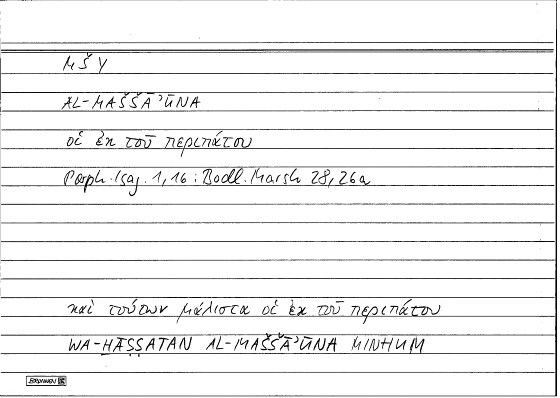 MŠY
AL-MAŠŠĀʾŪNA
οἱ ἐκ τοῦ περιπάτου
Porph. Isag. 1,16: Bodl. Marsh 28, 26a
καὶ τούτων μάλιστα οἱ ἐκ τοῦ περιπάτου
WA-ḪĀṢṢATAN AL-MAŠŠĀʾŪNA MINHUM
BRUNNEN